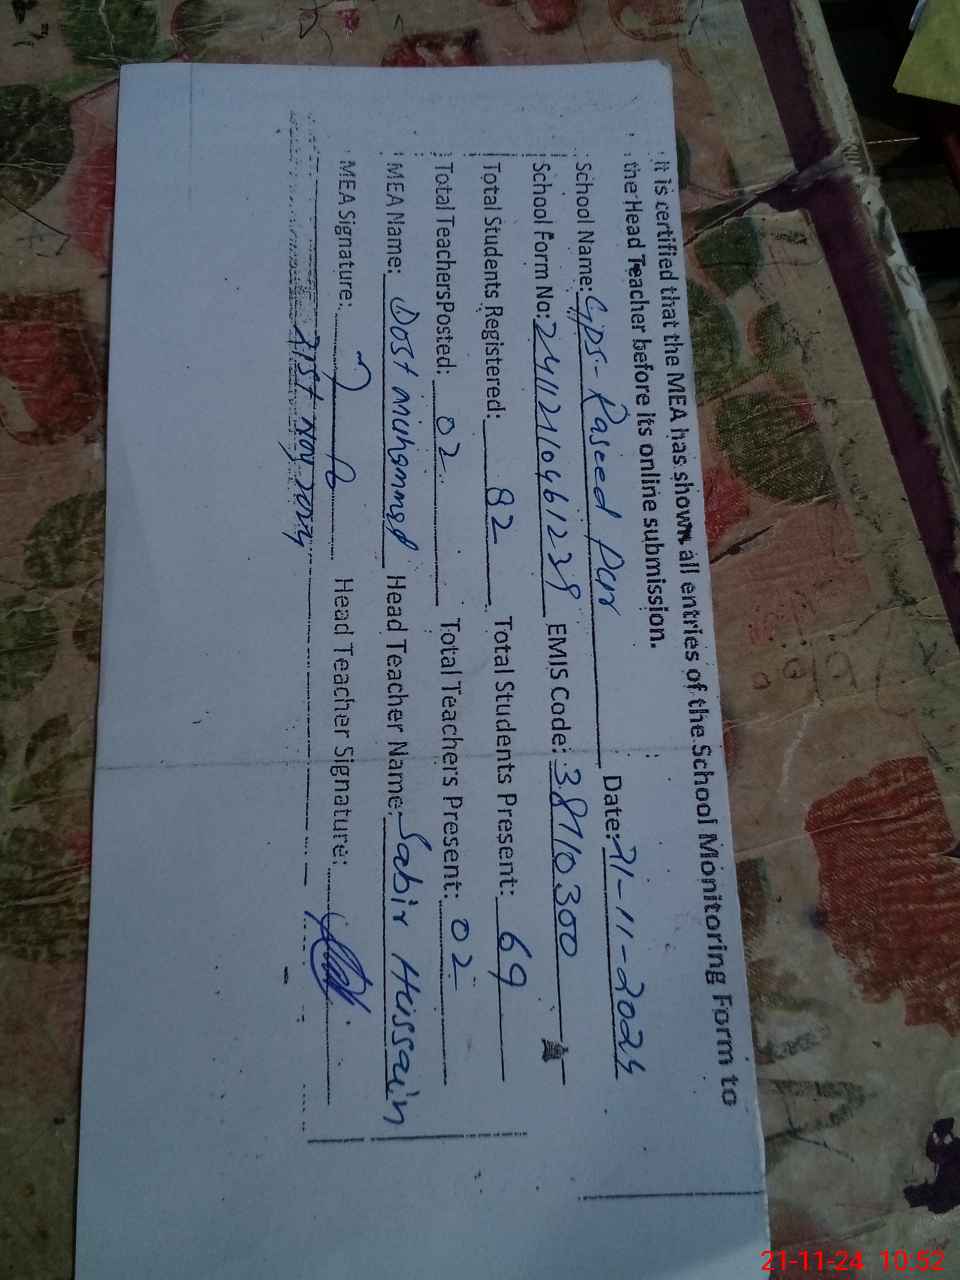 It is certified that the MEA has shown all entries of the School Monitoring Form to
the Head Teacher before its online submission.
School Name: GPS- Raseed pur Date: 21-11-2024
School Form No: 2411210461239 EMIS Code: 38110300
Total Students Registered: 82 Total Students Present: 69
Total TeachersPosted: 02 Total Teachers Present: 02
MEA Name: Dost muhammad Head Teacher Name: Sabir Hussain
MEA Signature: Head Teacher Signature:
21st Nov 2024
21-11-24 10:52